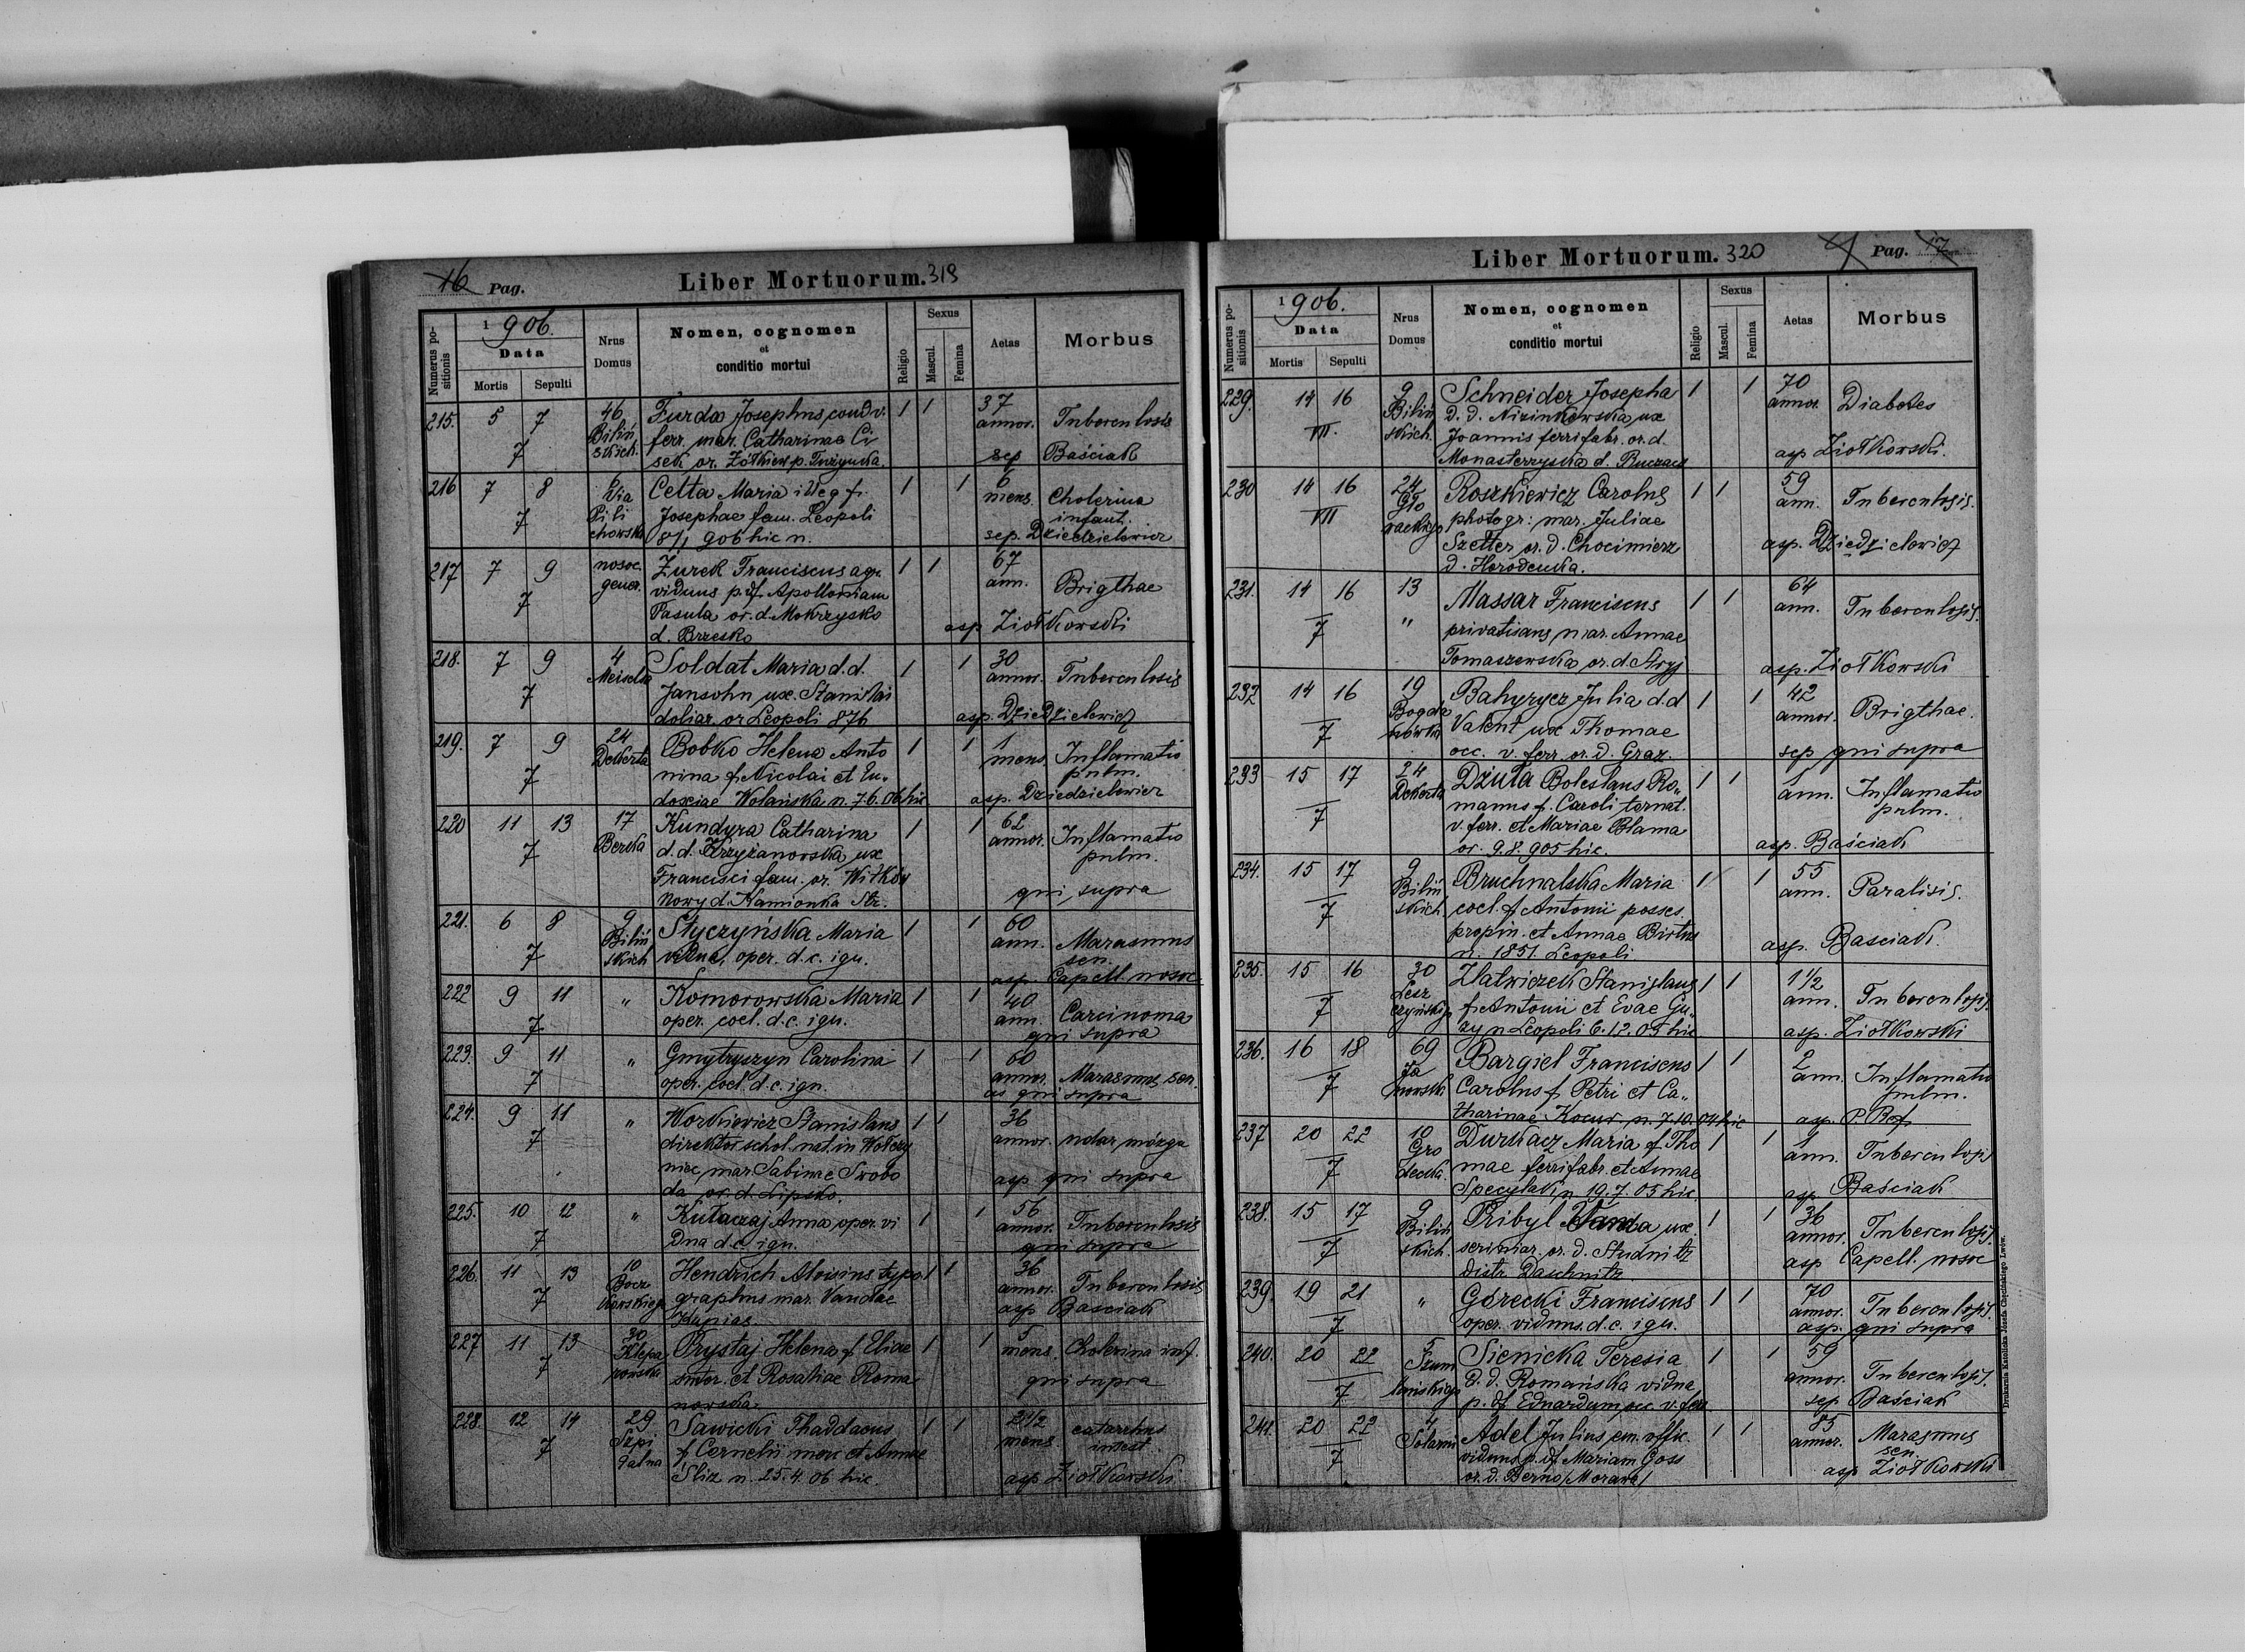 16 Pag. Liber Mortuorum. 319
Numerus positionis
1906.
Data
Mortis Sepulti
Nrus Domus
Nomen, cognomen
et
conditio mortui
Religio
Sexus
Mascul. Femina
Aetas
Morbus
215. 5 7 46 Furda Josephus, cond. v. 1 1 37
7 Biliń ferr. mar. Catharinae Ci annor. Tuberculosis
skich. sek or. Żółkiew p. sep Baściak
216 7 8 6 Cetta Maria illeg f. 1 1 6
7 Via Josephae fam. Leopoli mens Cholerina
Pili 8/1 906 hic n. infant.
chowska sep. Dziedzielewicz
217 7 9 nosoc. Żurek Franciscus agr. 1 1 67
7 gener. viduus p. df Apolloniam ann. Brigthae
Pasula or. d. Mokrzysko
d. Brzesko asp. Ziołkowski
218. 7 9 4 Soldat Maria d. d. 1 1 30
7 Meiselsa Jansohn ux. Stanislai annor. Tuberculosis
doliar. or Leopoli 876 asp. Dziedzielewicz
219. 7 9 24 Bobko Helena Anto 1 1 1
7 Dekerta nina f. Nicolai et Eu- mens. Inflamatio
doxiae Wolańska n. 7.6.06 hic pulm.
asp. Dziedzielewicz
220 11 13 17 Kundyra Catharina 1 1 62
7 Berka d. d. Krzyżanowska ux annor. Inflamatio
Francisci fam. or. Witków pulm.
nowy d. Kamionka Str. qui supra
221. 6 8 9 Styczyńska Maria 1 1 60
7 Biliń vidua, oper. d. c. ign. ann. Marasmus
skich sen.
asp. Capell. nosoc.
222 9 11 " Komorowska Maria 1 1 40
7 oper. coel. d. c. ign. ann. Carcinoma
qui supra
223. 9 11 " Gmytryszyn Carolina 1 1 60
7 oper. coel. d. c. ign. annor. Marasmus sen.
as qui supra
224. 9 11 " Workiewicz Stanislaus 1 1 36
7 direktor schol. nat. in Wołczy annor. udar mózgu
nie, mar Sabinae Swobo
da or. d. Lipsko. asp. qui supra
225. 10 12 " Kułaczaj Anna oper. vi 1 1 56
7 dua d. c. ign. annor. Tuberculosis
qui supra
226. 11 13 10 Hendrich Aloisius typo 1 1 36
7 Bocz graphus mar. Vandae annor. Tuberculosis
kowskiego Kupias. asp Baściak
227 11 13 30 Prystaj Helena f. Eliae 1 1 5
7 Klepa sutor. et Rosaliae Roma mens. Cholerina inf.
rowska nowska. qui supra
228. 12 14 29 Sawicki Thaddaeus 1 1 2 1/2
7 Szpi f. Cornelii merc et Annae mens catarrhus
talna Śliz n. 25.4.06 hic. intest
asp Ziołkowski
Liber Mortuorum. 320 Pag. 17
Numerus positionis
1906.
Data
Mortis Sepulti
Nrus Domus
Nomen, cognomen
et
conditio mortui
Religio
Sexus
Mascul. Femina
Aetas
Morbus
229. 14 16 9 Schneider Josepha 1 1 70
VII. Biliń d. d. Nizinkowska ux annor. Diabetes
skich. Joannis ferrifabr. or. d.
Monasterzyska d. Buczacz asp Ziołkowski.
230 14 16 24 Roszkiewicz Carolus 1 1 59
VII Gło photogr: mar. Juliae ann. Tuberculosis.
wackiego Szetter or. d. Chocimierz
d. Horodenka. asp. Dziedzielewicz
231. 14 16 13 Massar Franciscus 1 1 64
7 " privatisans, mar. Annae ann. Tuberculosis.
Tomaszewska or. d. Stryj asp. Ziołkowski
232 14 16 19 Bahyrycz Julia d. d 1 1 42
7 Bogda Valent ux Thomae annor. Brigthae.
nówka occ. v. ferr. or. d. Graz. sep qui supra
233 15 17 24 Dziuła Boleslaus Ro- 1 1 1
7 Dekerta manus f. Caroli ternat. ann. Inflamatio
v. ferr. et Mariae Blama pulm.
or. 9.8.905 hic. asp. Baściak
234. 15 17 9 Bruchnalska Maria 1 1 55
7 Biliń coel. f. Antonii posses. ann. Paralisis.
skich. propin. et Annae Birtus
n. 1851. Leopoli asp. Basciak.
235. 15 16 30 Zlatwiczek Stanislaus 1 1 1 1/2
7 Lesz f. Antonii et Evae Gu- ann. Tuberculosis.
czyńskiego zy n Leopoli 6.12.05 hic asp. Ziołkowski
236. 16 18 69 Bargiel Franciscus 1 1 2
7 Ja Carolus f. Petri et Ca- ann. Inflamatio
nowska tharinae Kocur. n. 7.10.04 hic pulm.
asp. P.
237 20 22 10 Durkacz Maria f. Tho 1 1 1
7 Gro mae ferrifabr. et Annae ann. Tuberculosis
decka. Specylak, n 19.7.05 hic. asp Baściak
238. 15 17 9 Pribyl Wanda ux. 1 1 36
7 Biliń scriniar. or. d. Studnitz annor. Tuberculosis.
skich. distr. Daschnitz. asp Capell. nosoc
239. 19 21 " Gorecki Franciscus 1 1 70
7 oper. viduus. d. c. ign. annor. Tuberculosis.
asp. qui supra
240. 20 22 5 Sienicka Teresia 1 1 59
7 Szum d. d. Romańska vidua annor. Tuberculosis.
lańskiego p. df Eduardum occ. v. ferr sep Baściak
241. 20 22 4 Adel Julius em. offic. 1 1 85
7 Solarni viduus p. df Mariam Goss annor. Marasmus
or. d. Berno/Morawa/ sen.
asp Ziołkowski
Drukarnia Katolicka Józefa Chęcińskiego Lwów.